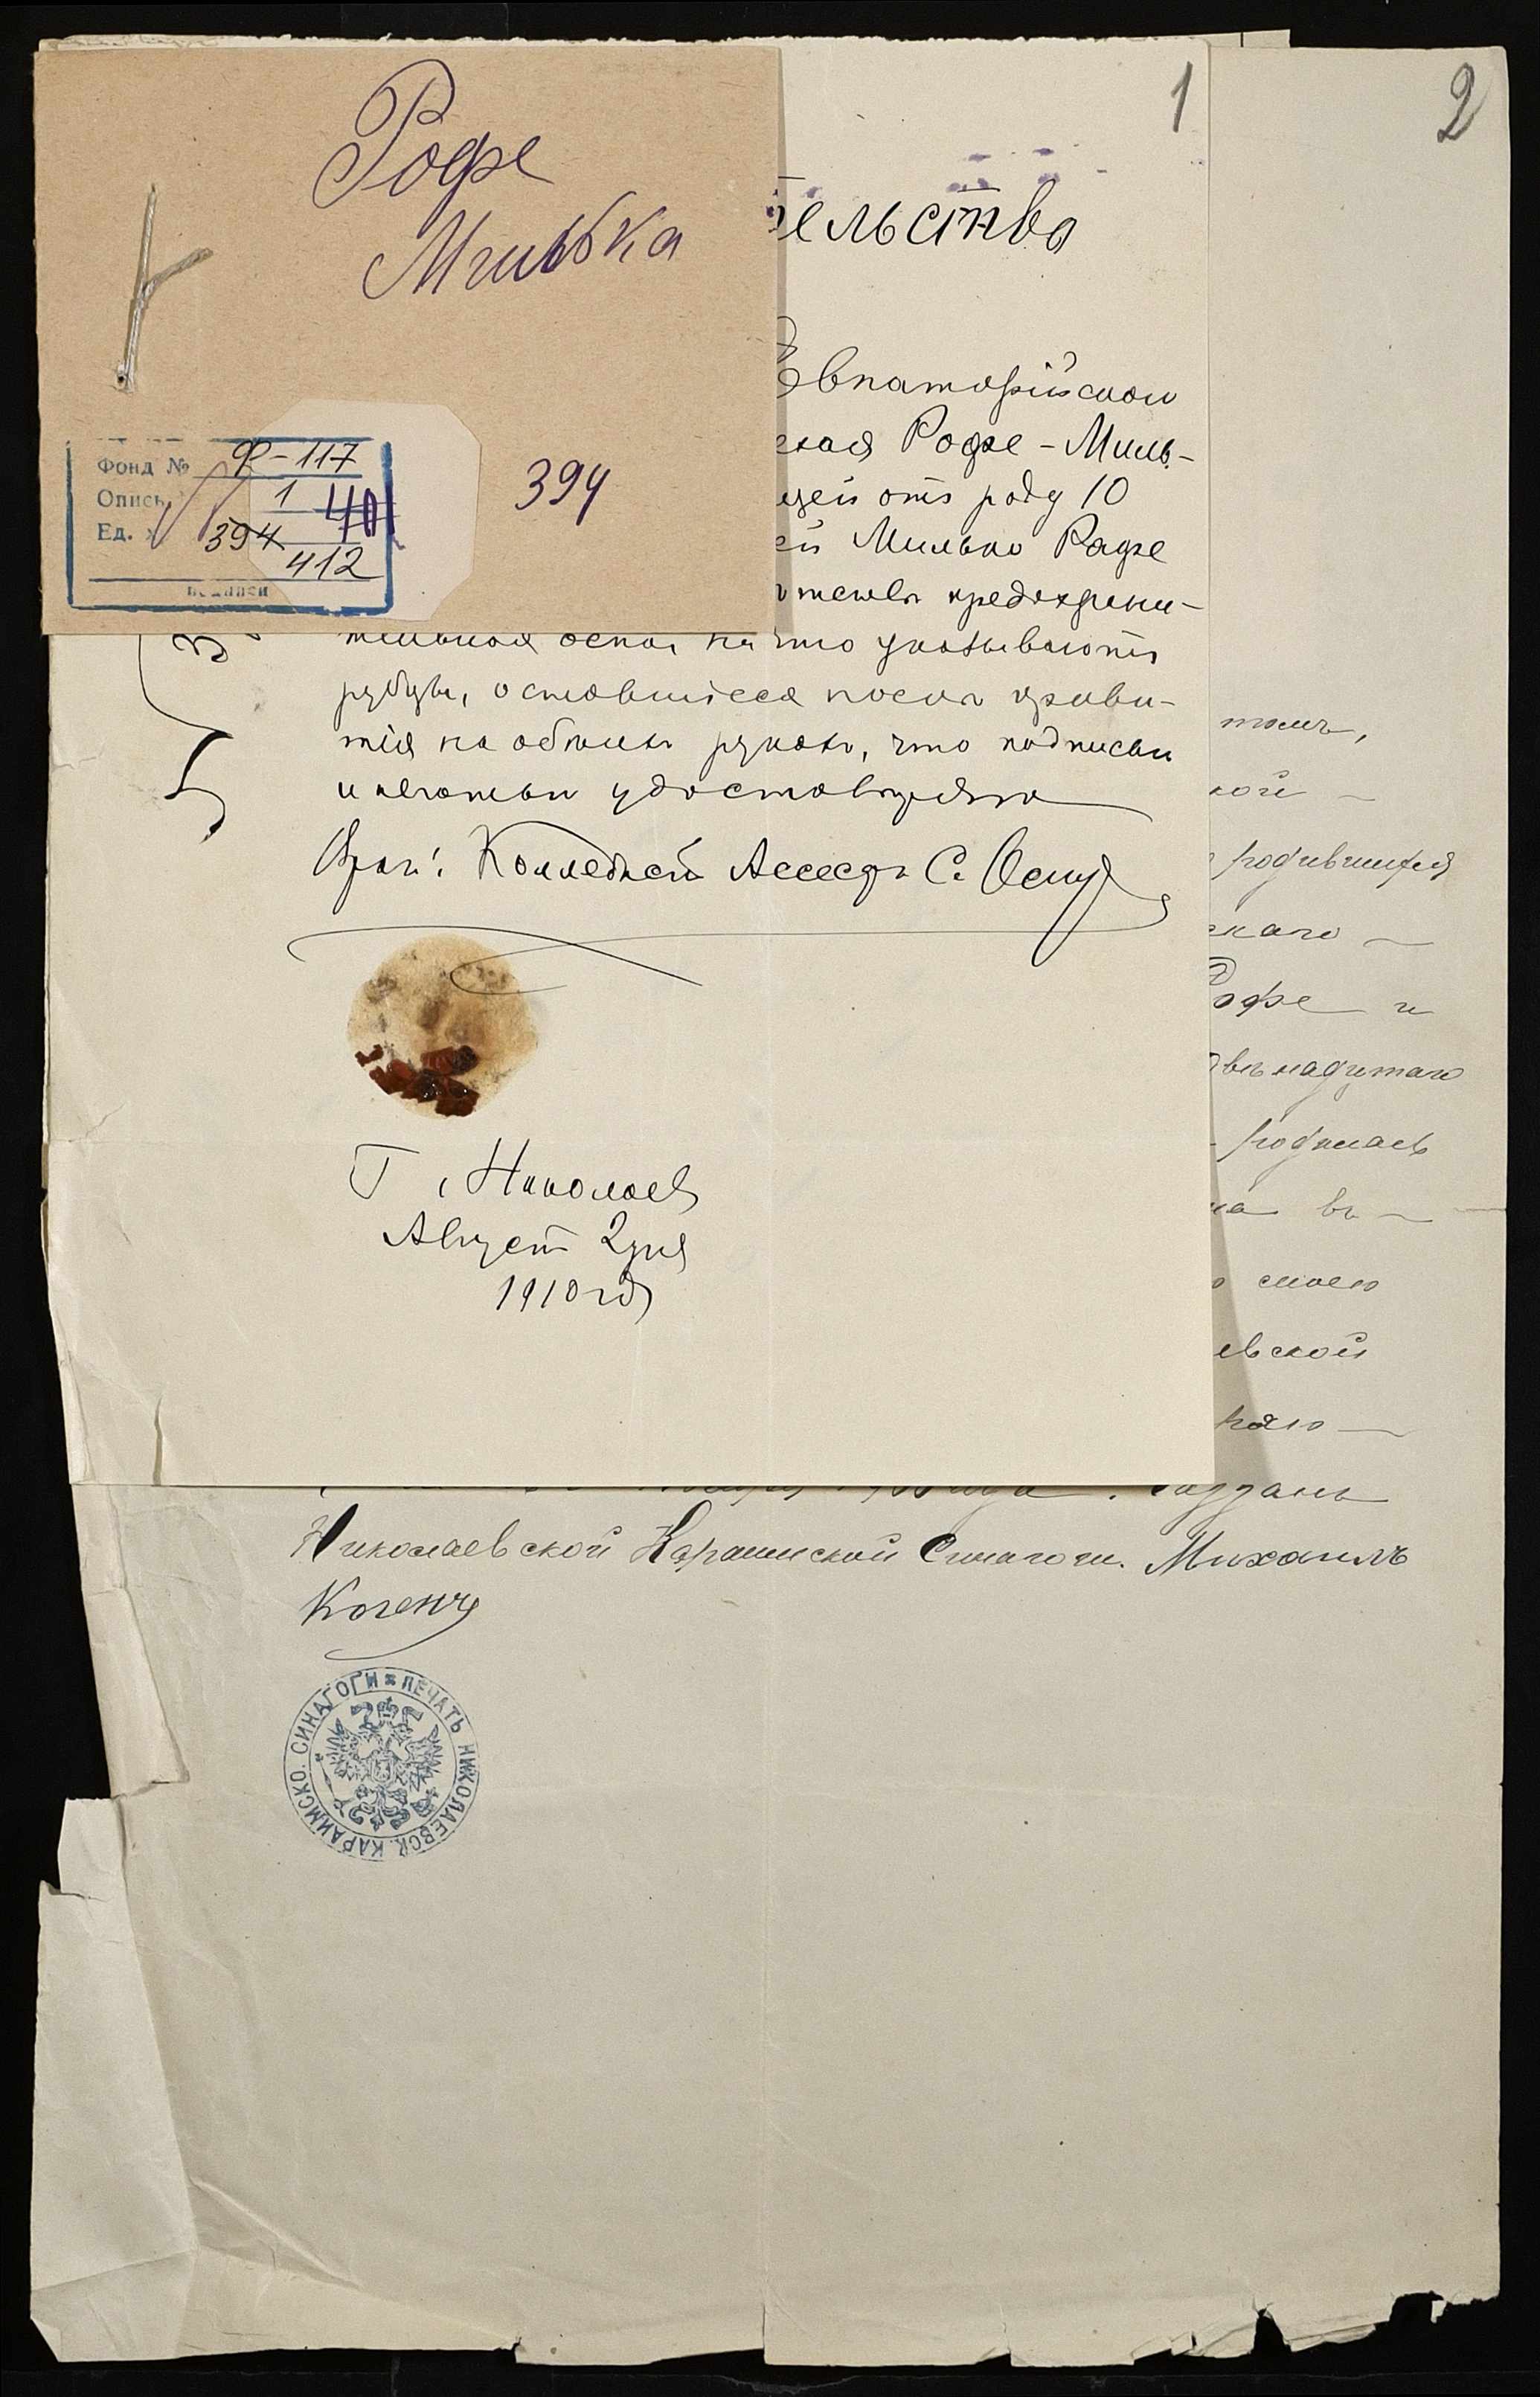 Рофе
Милька
Фонд № Ф-117
Опись 1 40
Ед. х 394
412
394
1
ельство
Евпаторійской
ская Рофе-Миль-
щей отъ роду 10
Милько Рафе
предохрани-
тельная оспа, на что указываютъ
рубцы, оставшіеся после приви-
тія на обѣихъ рукахъ, что подписью
и печатью удостовѣряю
Врач: Коллежскій Ассесоръ С.
Г. Николаев
Август 2 дня
1910 год
2
томъ,
кой
родившейся
скаго
Рофе и
двѣнадцатаго
родилась
на въ
о смою
евской
года. Газзанъ
Николаевской Караимской Синагоги. Михаилъ
Когенъ
ПЕЧАТЬ НИКОЛАЕВСК. КАРАИМСКО. СИНАГОГИ